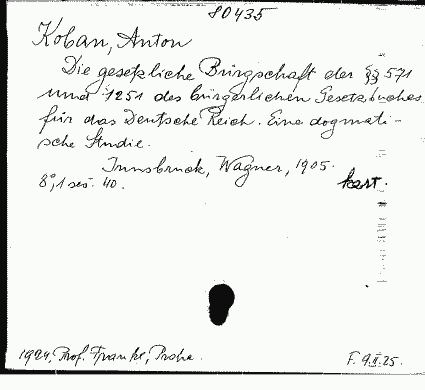 80435
Koban, Anton
Die gesetzliche Bürgschaft der §§ 571
und 1251 des bürgerlichen Gesetzbuches
für das Deutsche Reich. Eine dogmati-
sche Studie.
Innsbruck, Wagner, 1905.
8°, 1 seš. 40. kart.
1924, Prof. Frankl, Praha. F. 9.II.25.